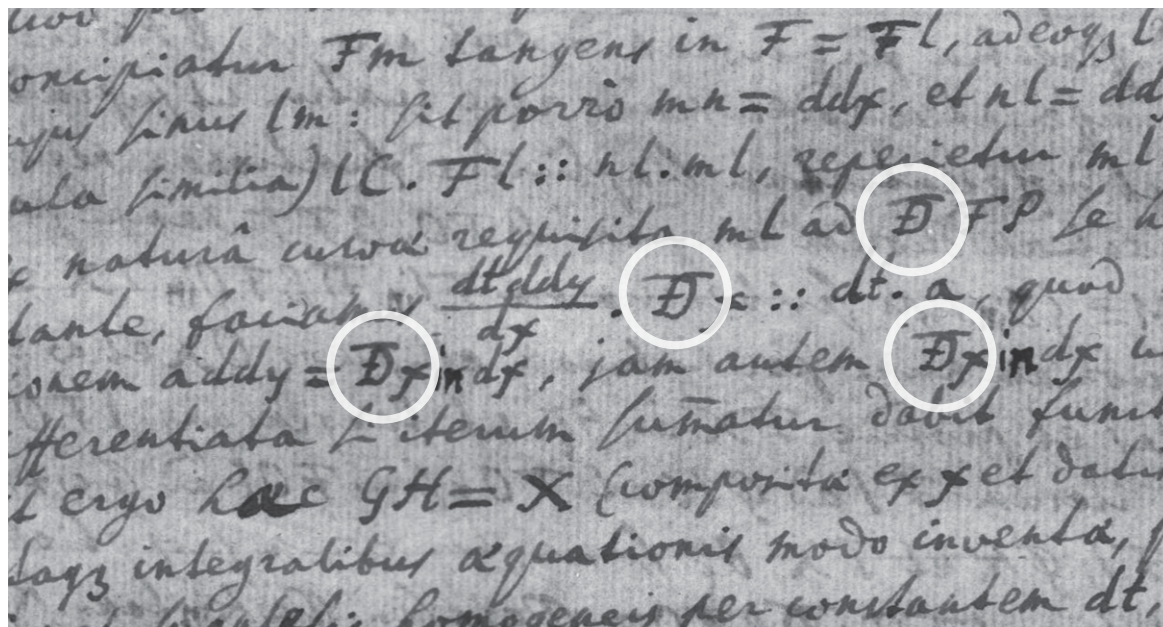 oncipiatur Fm tangens in F = Fl, adeoqꝫ l
ujus sinus lm: sit porrò mn = ddx, et nl = dd
ula similia) lC. Fl :: nl. ml, reperietur ml
naturâ curvæ requisita ml ad Đ F P se h
tante, faciamus dtddy/dx . Đ x :: dt. a, quod
onem addy = Đx in dx, jam autem Đx in dx
ifferentiata iterum sum̄atur dabit funct
t ergo hæc GH = X (composita ex x et datis
daqꝫ integralibus æquationis modo inventa,
homogeneis per constantem dt,